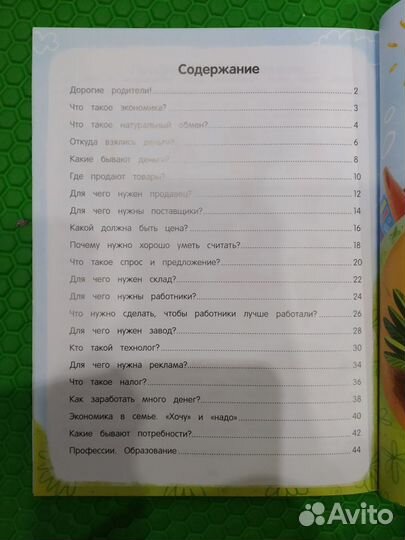 Содержание
Дорогие родители! 2
Что такое экономика? 3
Что такое натуральный обмен? 4
Откуда взялись деньги? 6
Какие бывают деньги? 8
Где продают товары? 10
Для чего нужен продавец? 12
Для чего нужны поставщики? 14
Какой должна быть цена? 16
Почему нужно хорошо уметь считать? 18
Что такое спрос и предложение? 20
Для чего нужен склад? 22
Для чего нужны работники? 24
Что нужно сделать, чтобы работники лучше работали? 26
Для чего нужен завод? 28
Кто такой технолог? 30
Для чего нужна реклама? 34
Что такое налог? 36
Как заработать много денег? 38
Экономика в семье. «Хочу» и «надо» 40
Какие бывают потребности? 42
Профессии. Образование 44
Avito